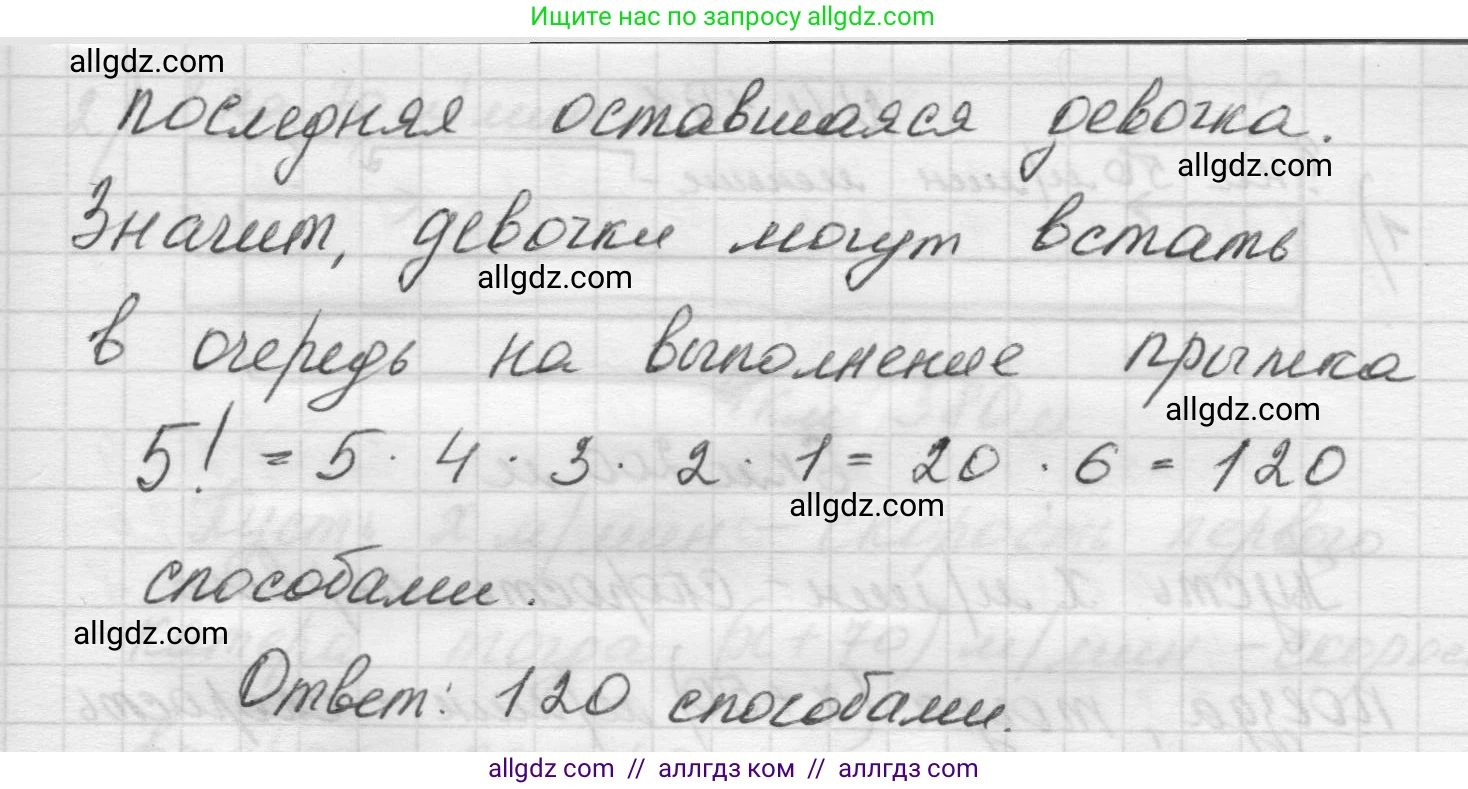 Ищите нас по запросу allgdz.com
allgdz.com
последняя оставшаяся девочка.
allgdz.com
Значит, девочки могут встать
allgdz.com
в очередь на выполнение прыжка
allgdz.com
5! = 5 · 4 · 3 · 2 · 1 = 20 · 6 = 120
allgdz.com
способами.
allgdz.com
Ответ: 120 способами.
allgdz com // аллгдз ком // аллгдз com